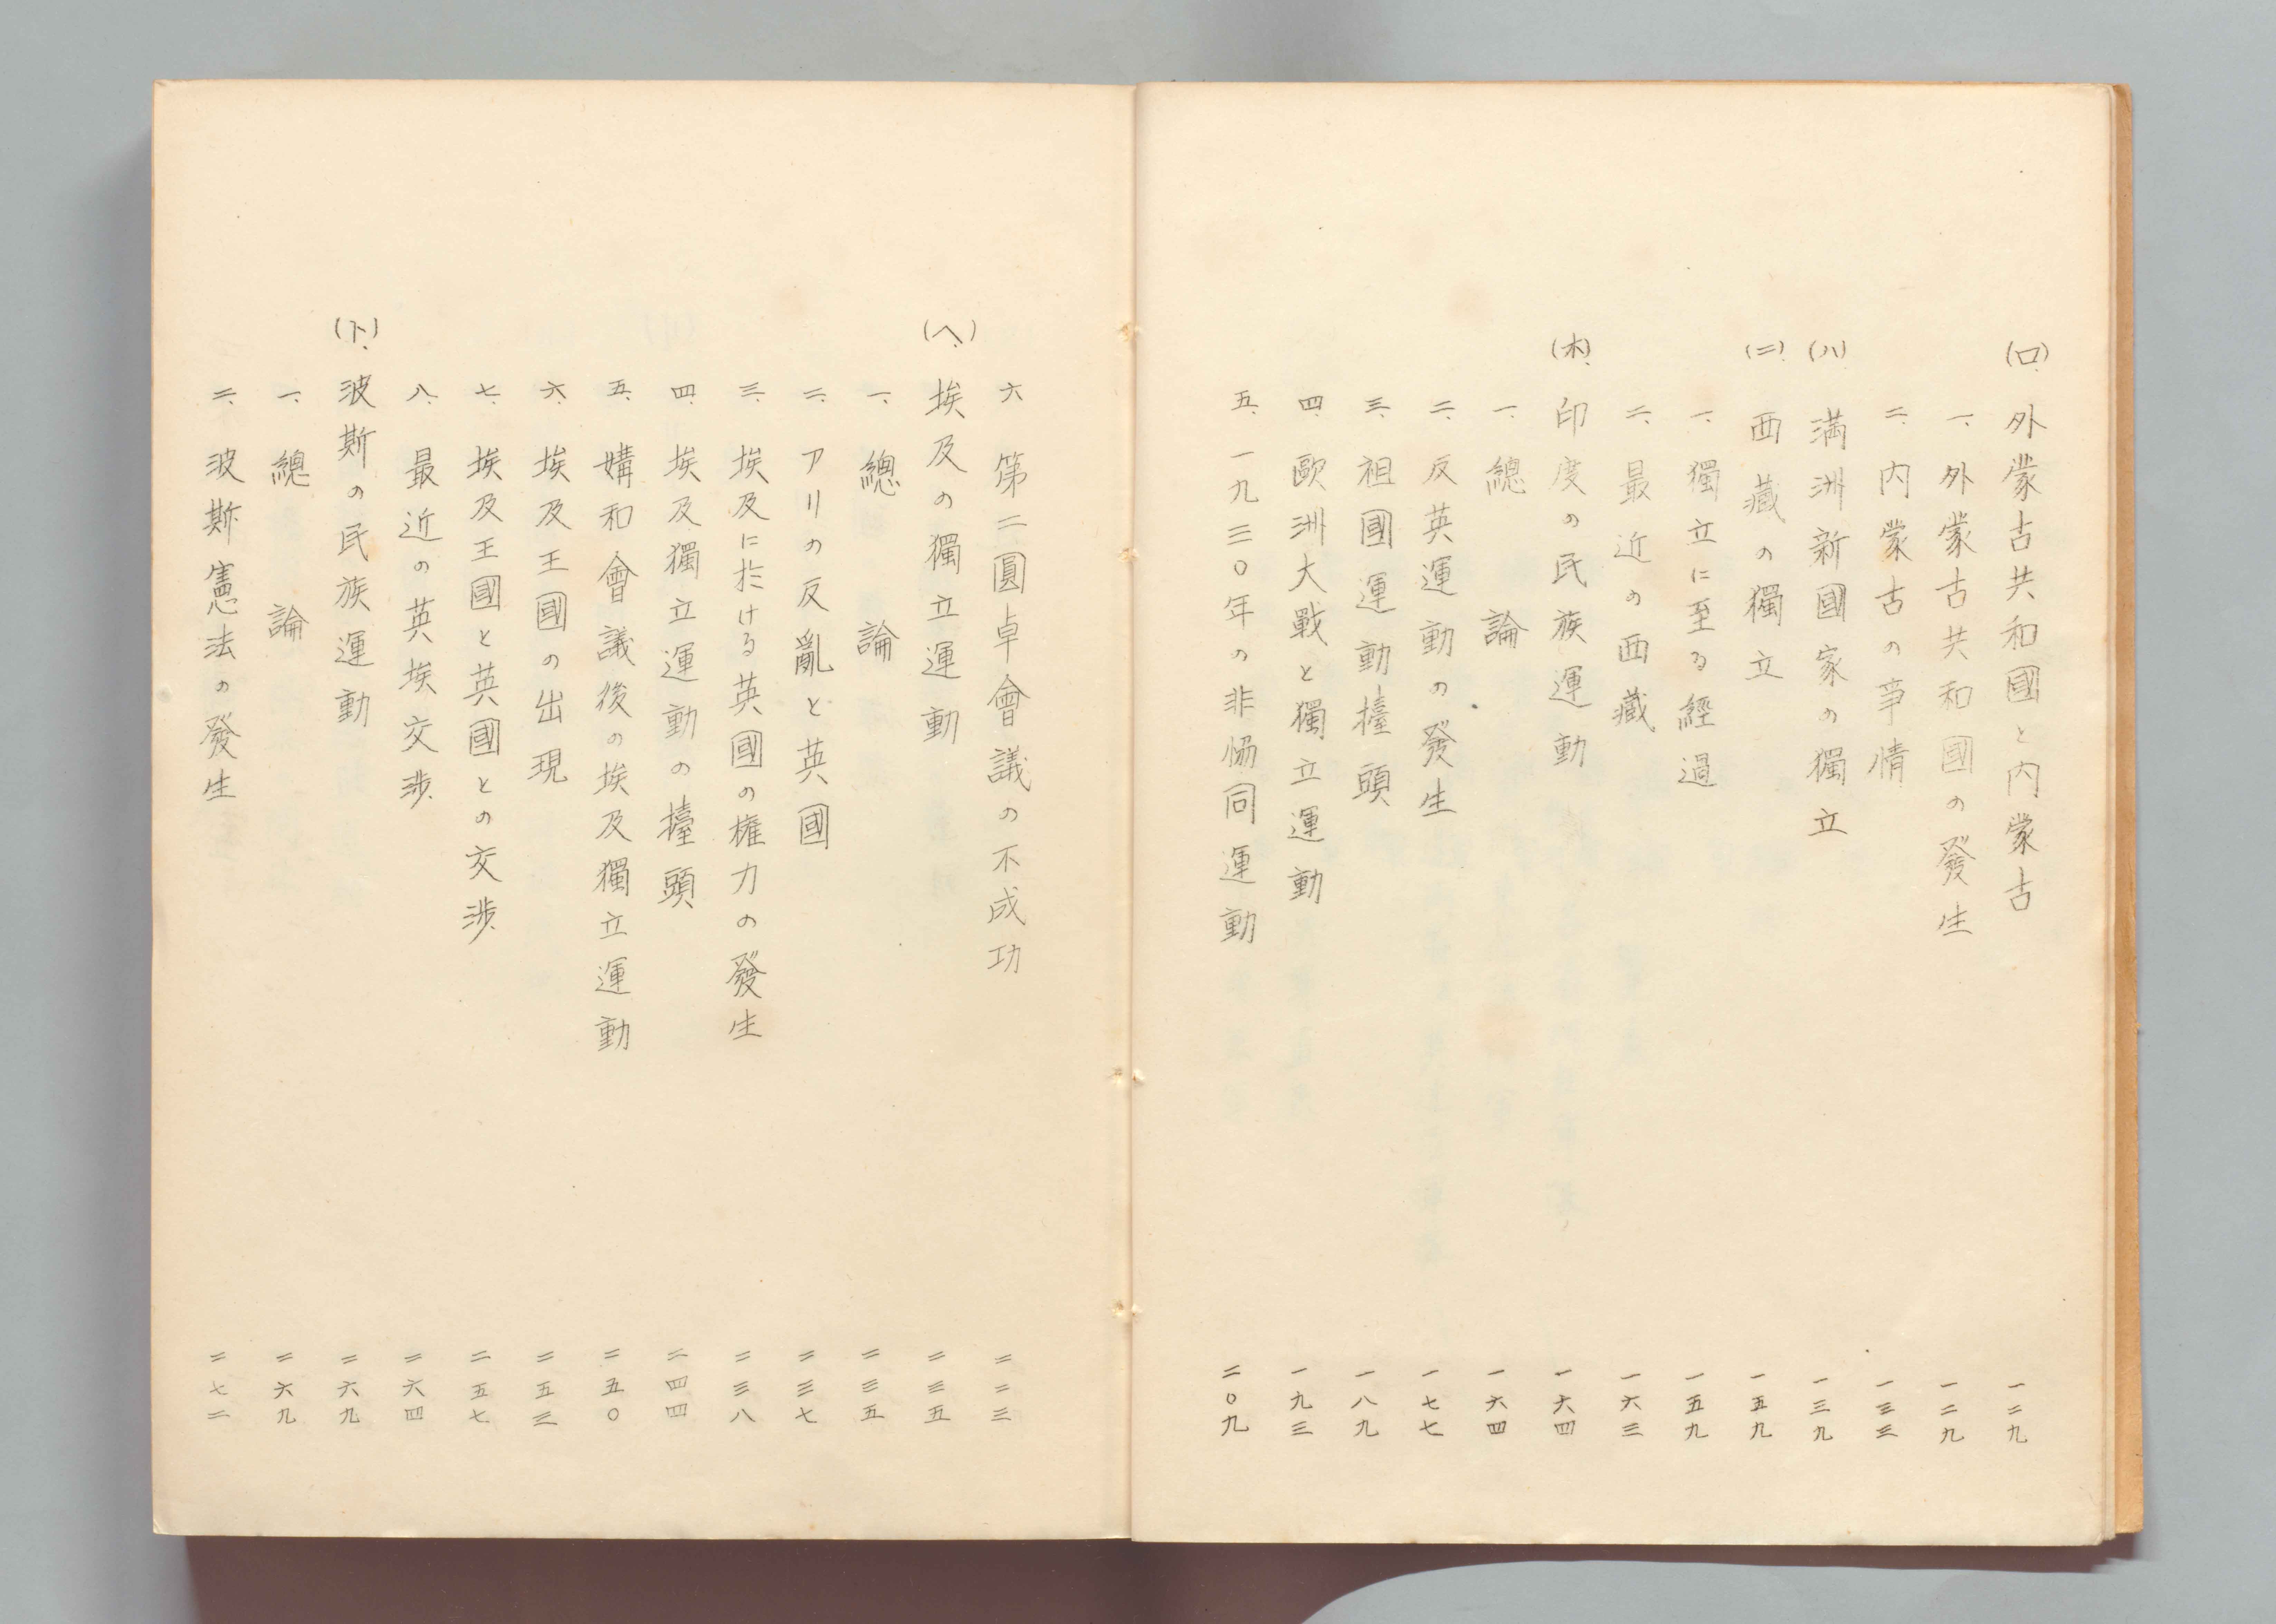 (ロ)、外蒙古共和國と内蒙古 一二九
一、外蒙古共和國の發生 一二九
二、内蒙古の事情 一三三
(ハ)、満洲新國家の獨立 一三九
(ニ)、西藏の獨立 一五九
一、獨立に至る經過 一五九
二、最近の西藏 一六三
(ホ)、印度の民族運動 一六四
一、總論 一六四
二、反英運動の發生 一七七
三、祖國運動擡頭 一八九
四、歐洲大戰と獨立運動 一九三
五、一九三〇年の非恊同運動 二〇九
六 第二圓卓會議の不成功 二二三
(ヘ)、埃及の獨立運動 二三五
一、總論 二三五
二、アリの反亂と英國 二三七
三、埃及に於ける英國の權力の發生 二三八
四、埃及獨立運動の擡頭 二四四
五、媾和會議後の埃及獨立運動 二五〇
六、埃及王國の出現 二五三
七、埃及王國と英國との交渉 二五七
八、最近の英埃交渉 二六四
(ト)、波斯の民族運動 二六九
一、總論 二六九
二、波斯憲法の發生 二七二